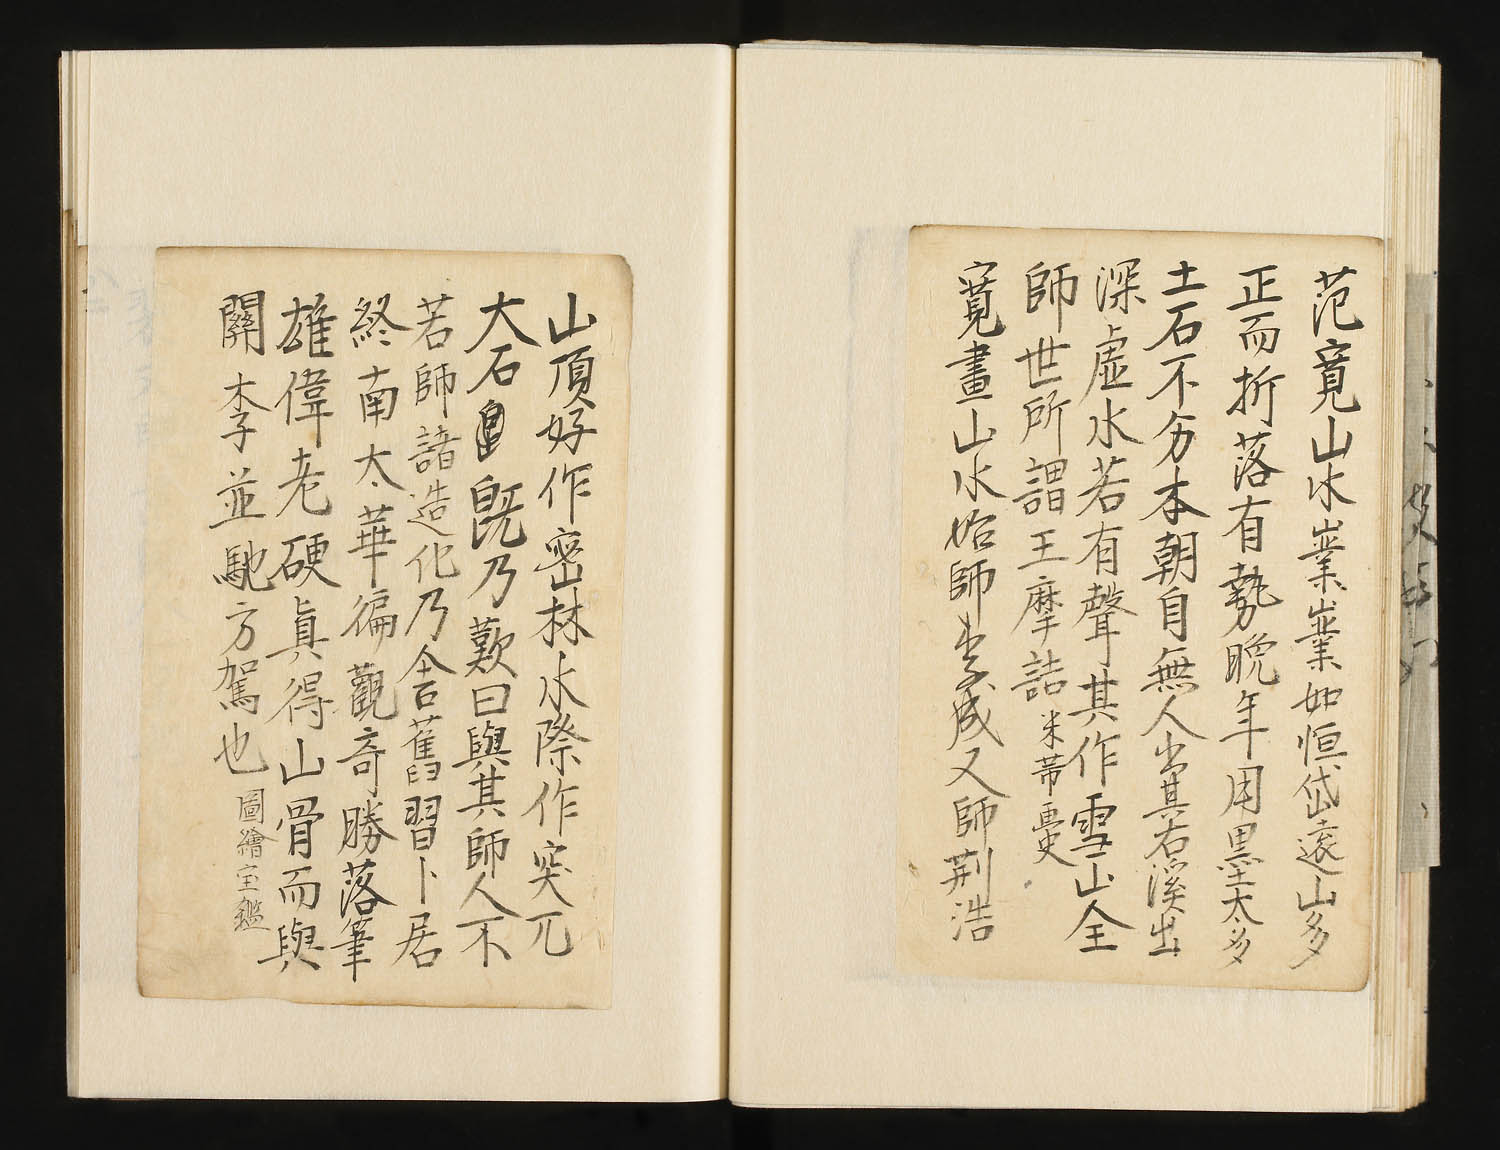 范寛山水業業如恒岱遠山多
正而折落有勢晚年用墨太多
土石不分本朝自無人出其右溪出
深虛水若有聲其作雪山全
師世所謂王摩詰 米芾畫史
寛畫山水始師李成又師荆浩
山頂好作密林水際作突兀
大石 既乃歎曰與其師人不
若師諸造化乃舍舊習卜居
終南太華徧觀奇勝落筆
雄偉老硬眞得山骨而與
關李並馳方駕也 圖繪宝鑑